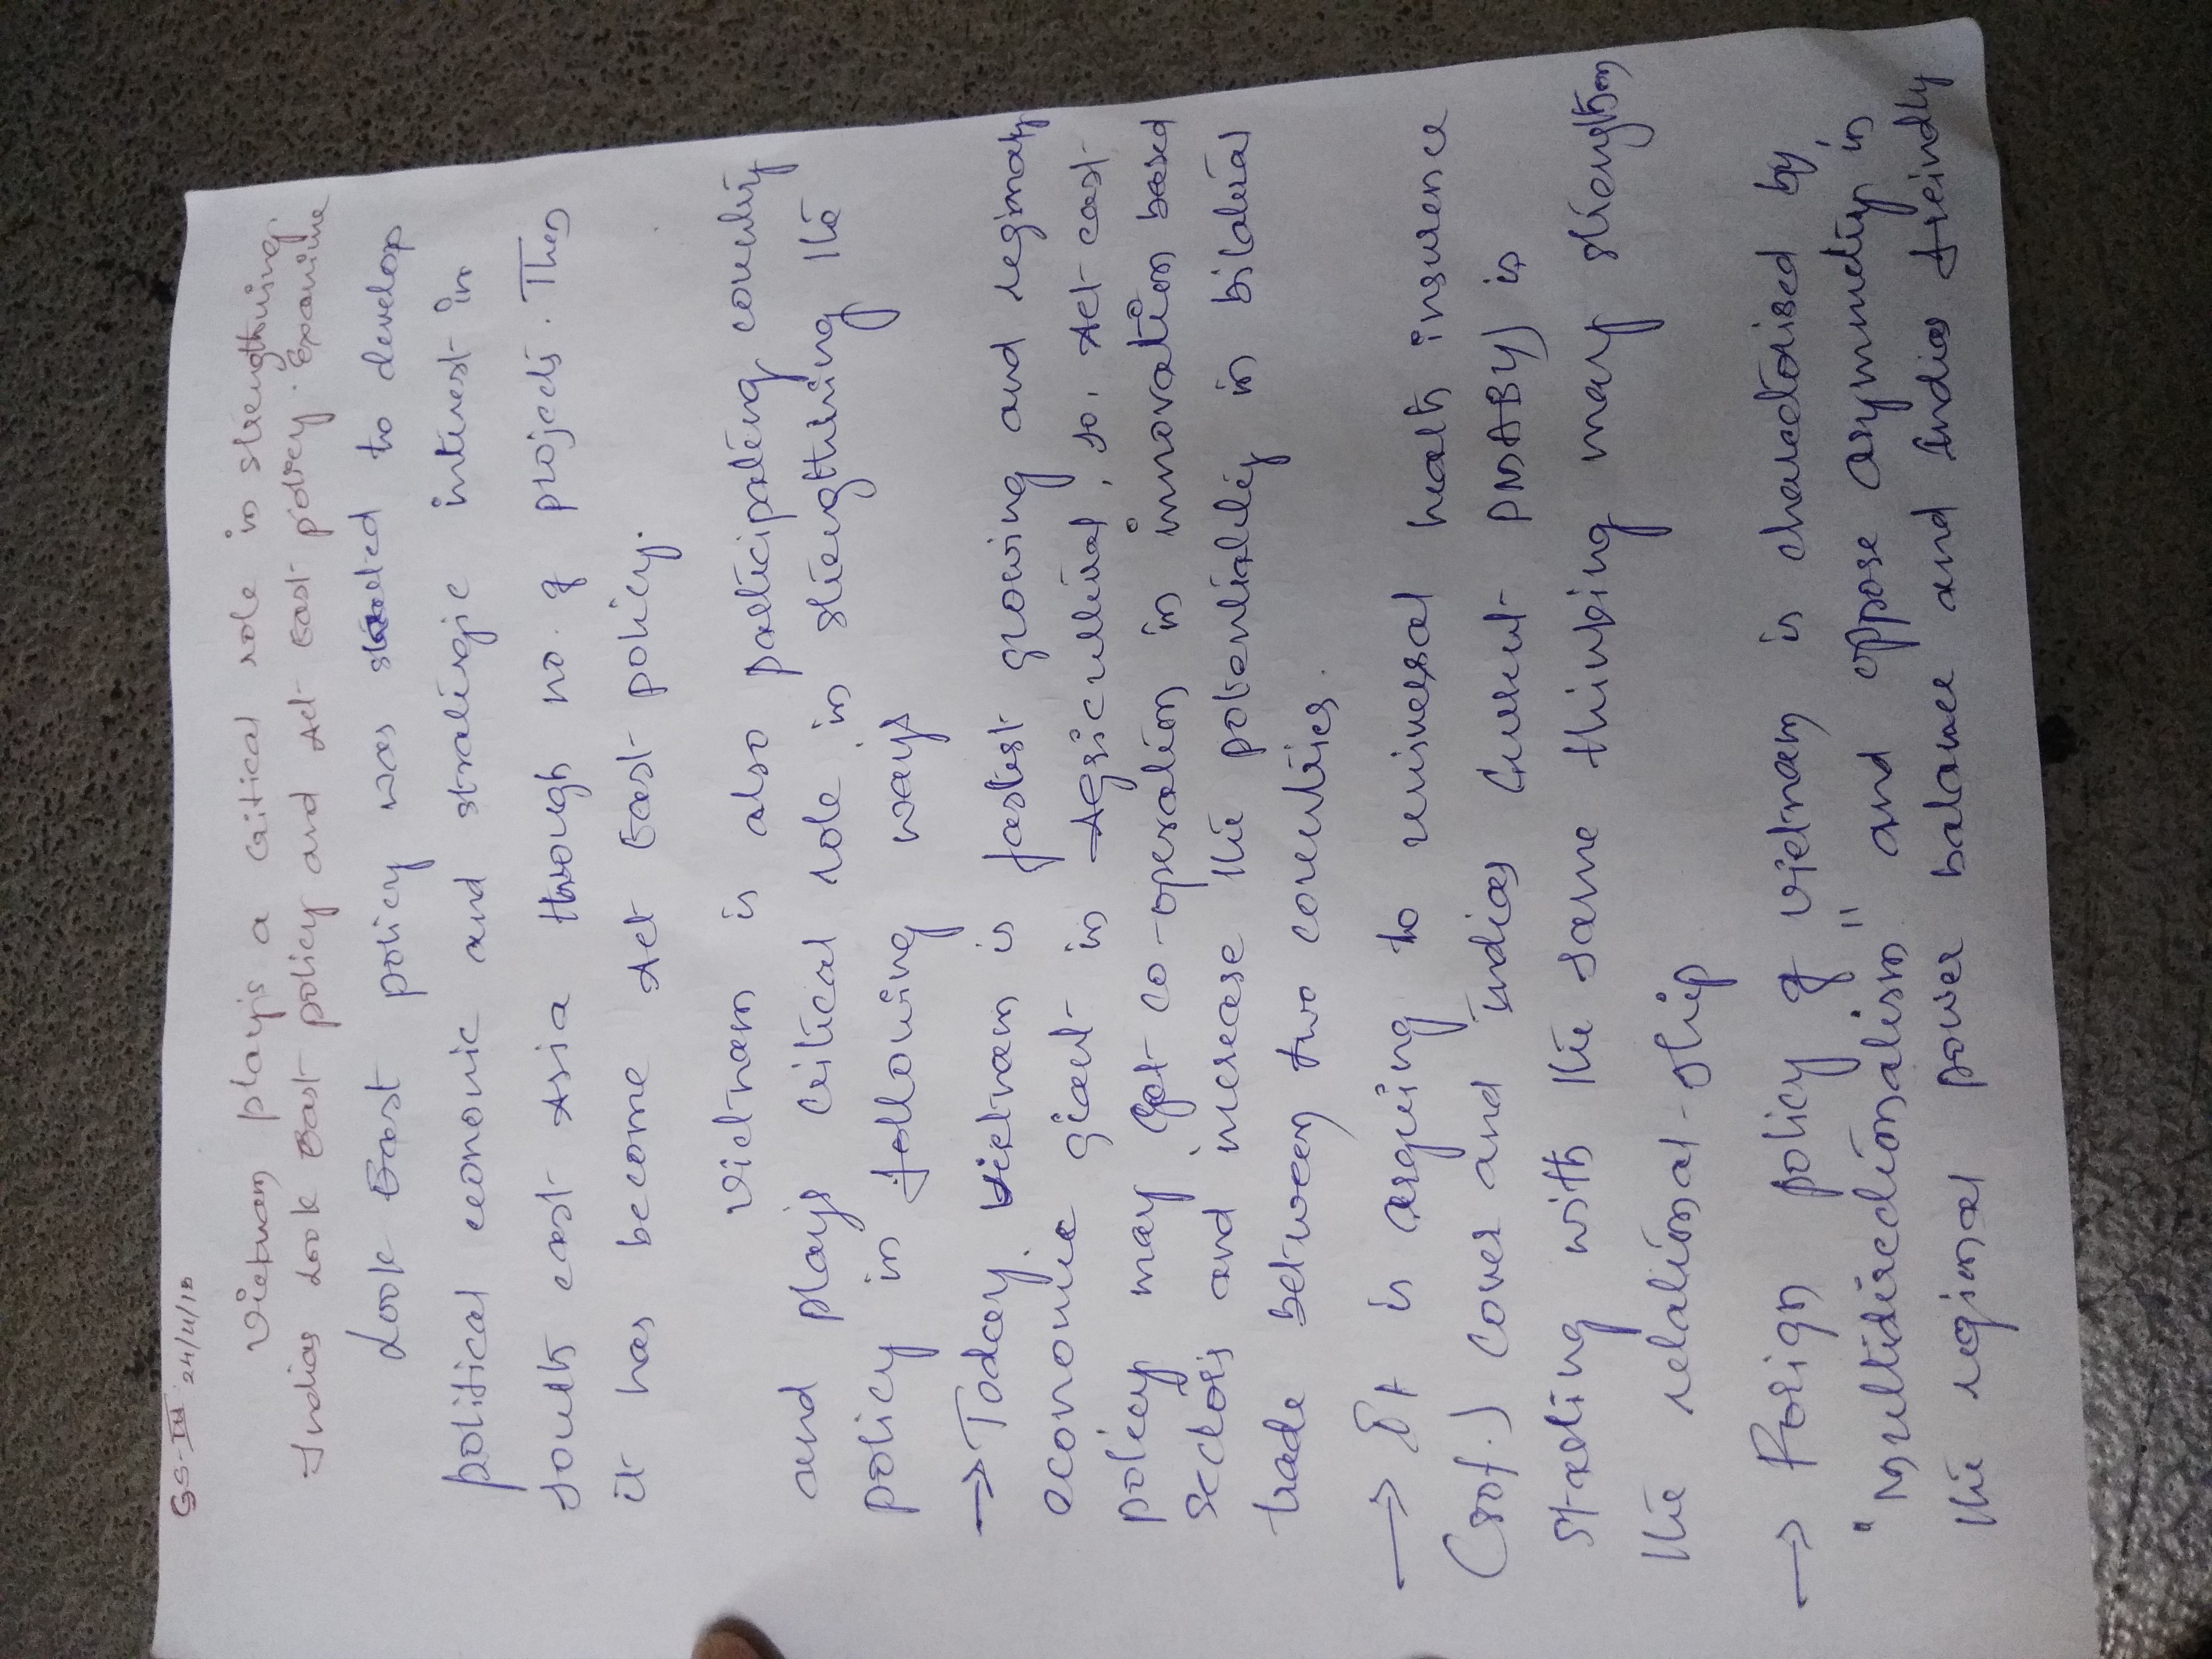 GS-III 24/11/18
Vietnam plays a critical role in stengthning
Indias Look East policy and Act East policy. Examine
Look East policy was started to develop
political economic and stratergic interest in
South east Asia through no. of projects. Then
it has become Act East policy.
Vietnam is also participating country
and plays critical role in stengthning the
policy in following ways
→ Today. Vietnam is fastest growing and reginaly
economic giant in Agricultural, so, Act east
policy may get co-operation in innovation based
sectors and increase the potentiality in bilateral
trade between two countries.
→ It is arguing to universal health insurence
(80%) cover and Indias Current PMABY) is
starting with the same thinking may strengthen
the relational-ship
→ Forign policy of vietnam is charectorised by
"Multidirectionalism" and oppose asymmetry in
the reginal power balance and Indias freindly